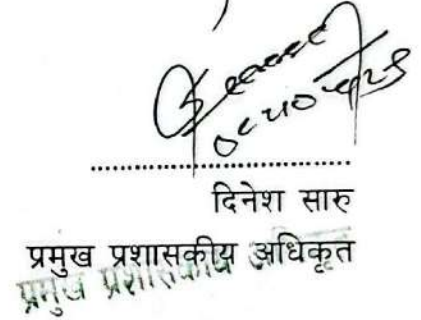 ....................................
दिनेश सारु
प्रमुख प्रशासकीय अधिकृत
प्रमुख प्रशासकीय अधिकृत